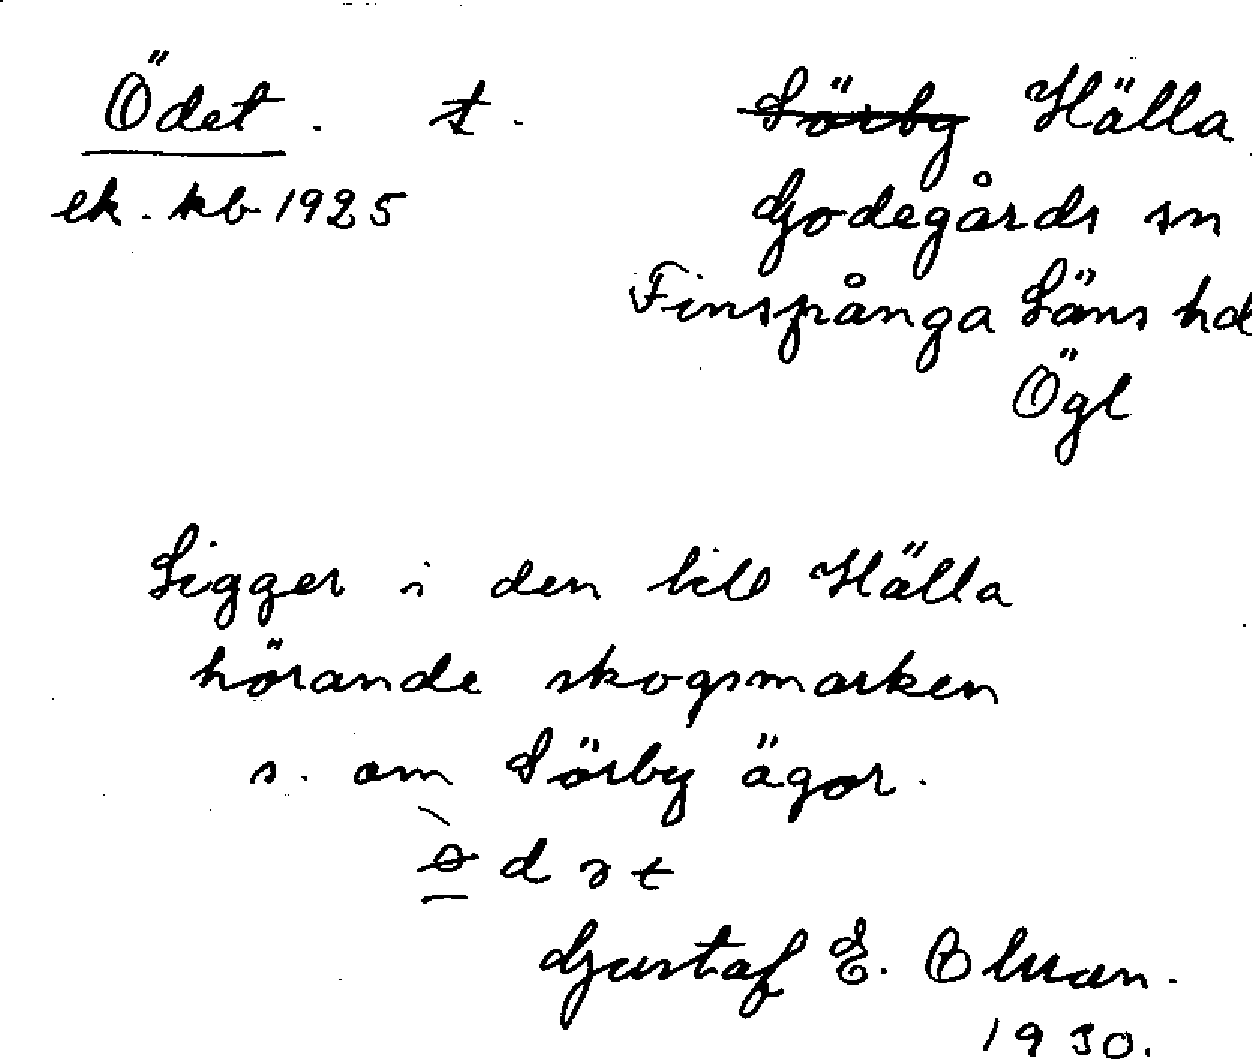 Ödet. t. Sörby Hälla
ek. kb 1925 Godegårds sn
Finspånga Läns hd
Ögl
Ligger i den till Hälla
hörande skogsmarken
s. om Sörby ägor.
Gustaf E.
1930.